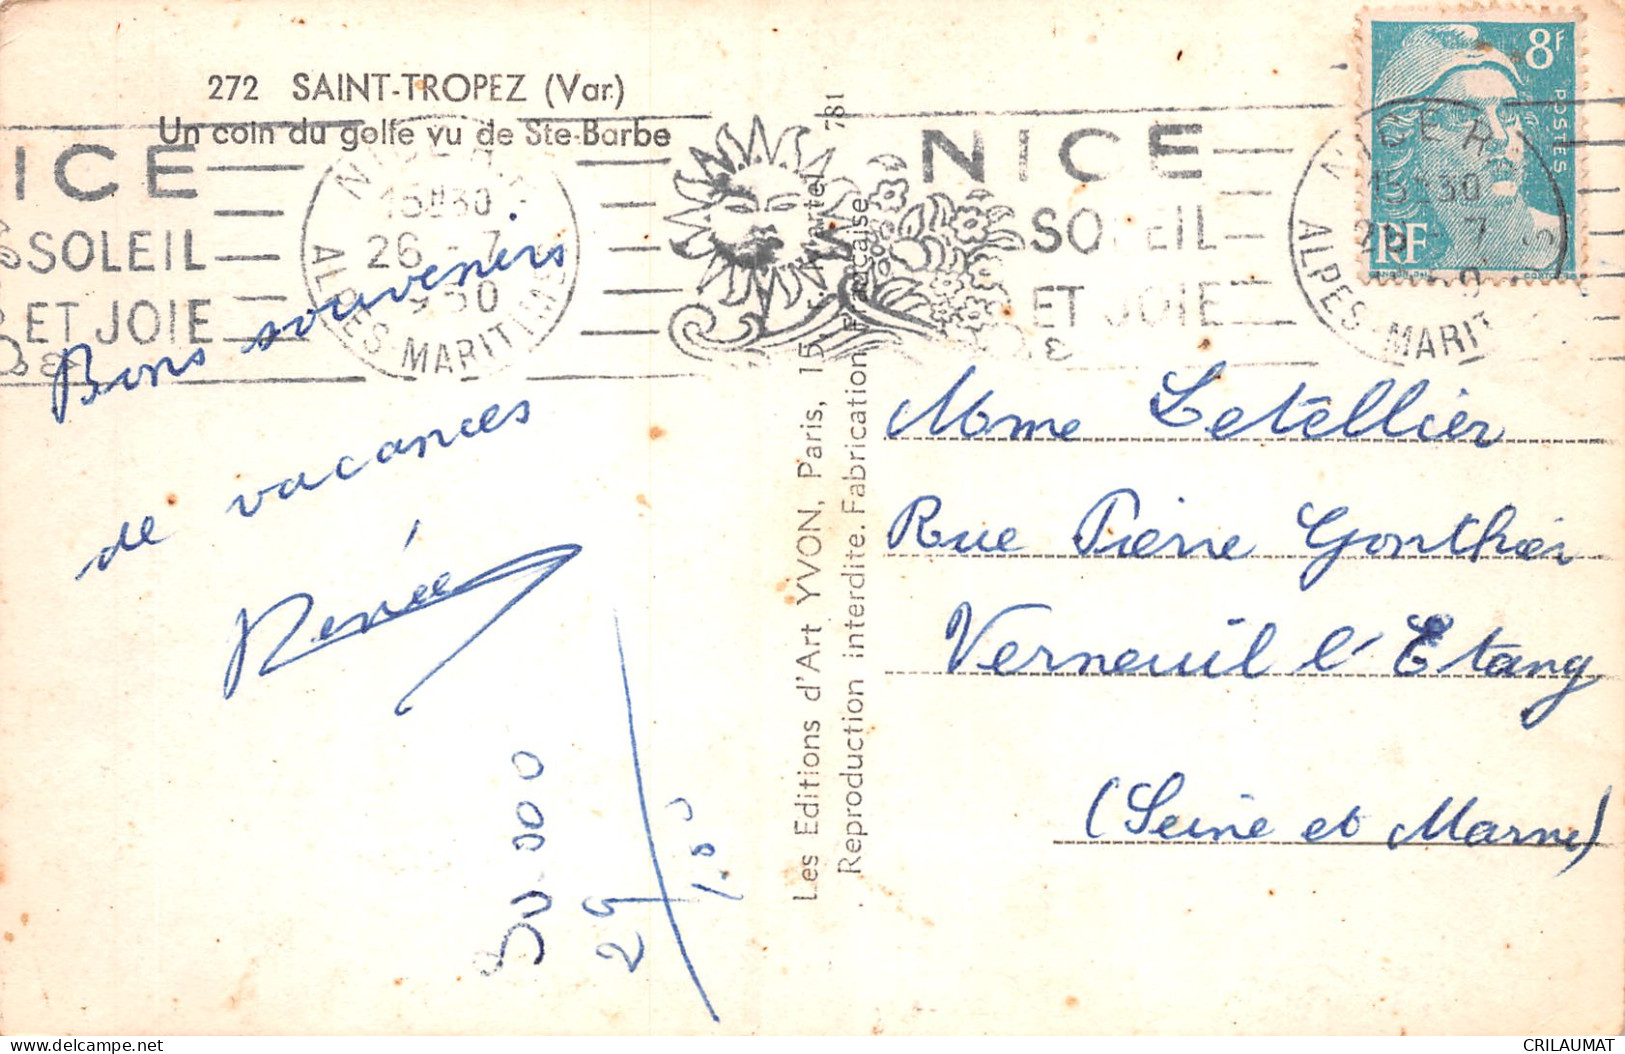 272 SAINT-TROPEZ (Var.)
Un coin du golfe vu de Ste-Barbe
ICE
SOLEIL
ET JOIE
NICE R.P.
15H30
26 - 7
1950
ALPES-MARITIMES
NICE
SOLEIL
ET JOIE
8F
POSTES
RF
NICE R.P.
15H30
26 - 7
ALPES-MARIT
Bons souvenirs
de vacances
Renée
Les Editions d'Art YVON, Paris, 15, r. Martel 781
Reproduction interdite. Fabrication Française
Mme Letellier
Rue Pierre Gonthier
Verneuil l'Etang
(Seine et Marne)
29
1.00
CRILAUMAT